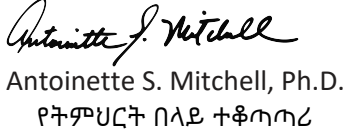 Antoinette S. Mitchell
Antoinette S. Mitchell, Ph.D.
የትምህርት በላይ ተቆጣጣሪ